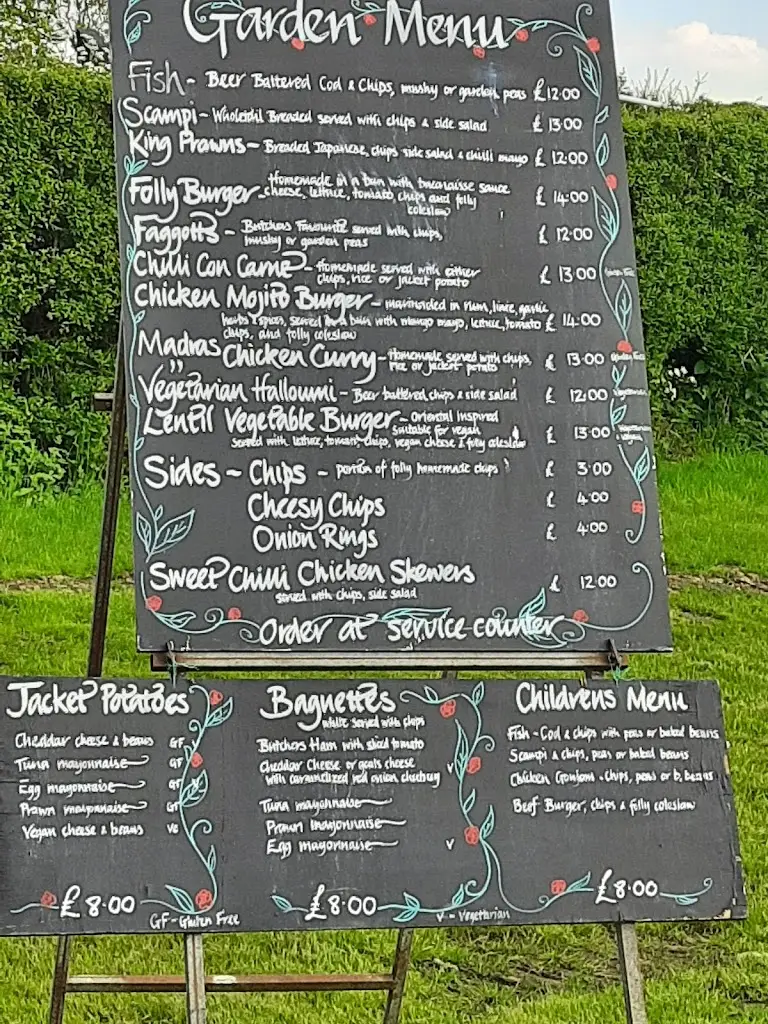 Garden Menu
Fish - Beer Battered Cod & Chips, mushy or garden peas £12.00
Scampi - Wholetail Breaded served with chips & side salad £ 13.00
King Prawns - Breaded Japanese, chips side salad & chilli mayo £ 12.00
Folly Burger - Homemade in a bun with bearnaisse sauce
cheese, lettuce, tomato chips and folly £ 14.00
coleslaw
Faggotts - Butchers Favourite served with chips, £ 12.00
mushy or garden peas
Chilli Con Carne - Homemade served with either £ 13.00
chips, rice or jacket potato
Chicken Mojito Burger - marinaded in rum, lime, garlic
herbs & spices, served in a bun with mango mayo, lettuce, tomato £ 14.00
chips, and folly coleslaw
Madras Chicken Curry - Homemade, served with chips, £ 13.00
rice or jacket potato
Vegetarian Halloumi - Beer battered, chips & side salad £ 12.00 Vegetarian
Lentil Vegetable Burger - Oriental Inspired
Suitable for vegan £ 13.00 Vegetarian
served with lettuce, tomato, chips, vegan cheese & folly coleslaw Vegan
Sides ~ Chips - portion of folly homemade chips £ 3.00
Cheesy Chips £ 4.00
Onion Rings £ 4.00
Sweet Chilli Chicken Skewers £ 12.00
served with chips, side salad
Order at service counter
Jacket Potatoes
Cheddar cheese & beans GF
Tuna mayonnaise GF
Egg mayonnaise GF
Prawn mayonnaise GF
Vegan cheese & beans VE
£8.00
GF - Gluten Free
Baguettes
white served with chips
Butchers Ham with sliced tomato
Cheddar Cheese or goats cheese
with caramelized red onion chutney V
Tuna mayonnaise
Prawn mayonnaise
Egg mayonnaise V
£8.00
V - Vegetarian
Childrens Menu
Fish - Cod & chips with peas or baked beans
Scampi & chips, peas or baked beans
Chicken Goujons - chips, peas or b, beans
Beef Burger, chips & folly coleslaw
£8.00